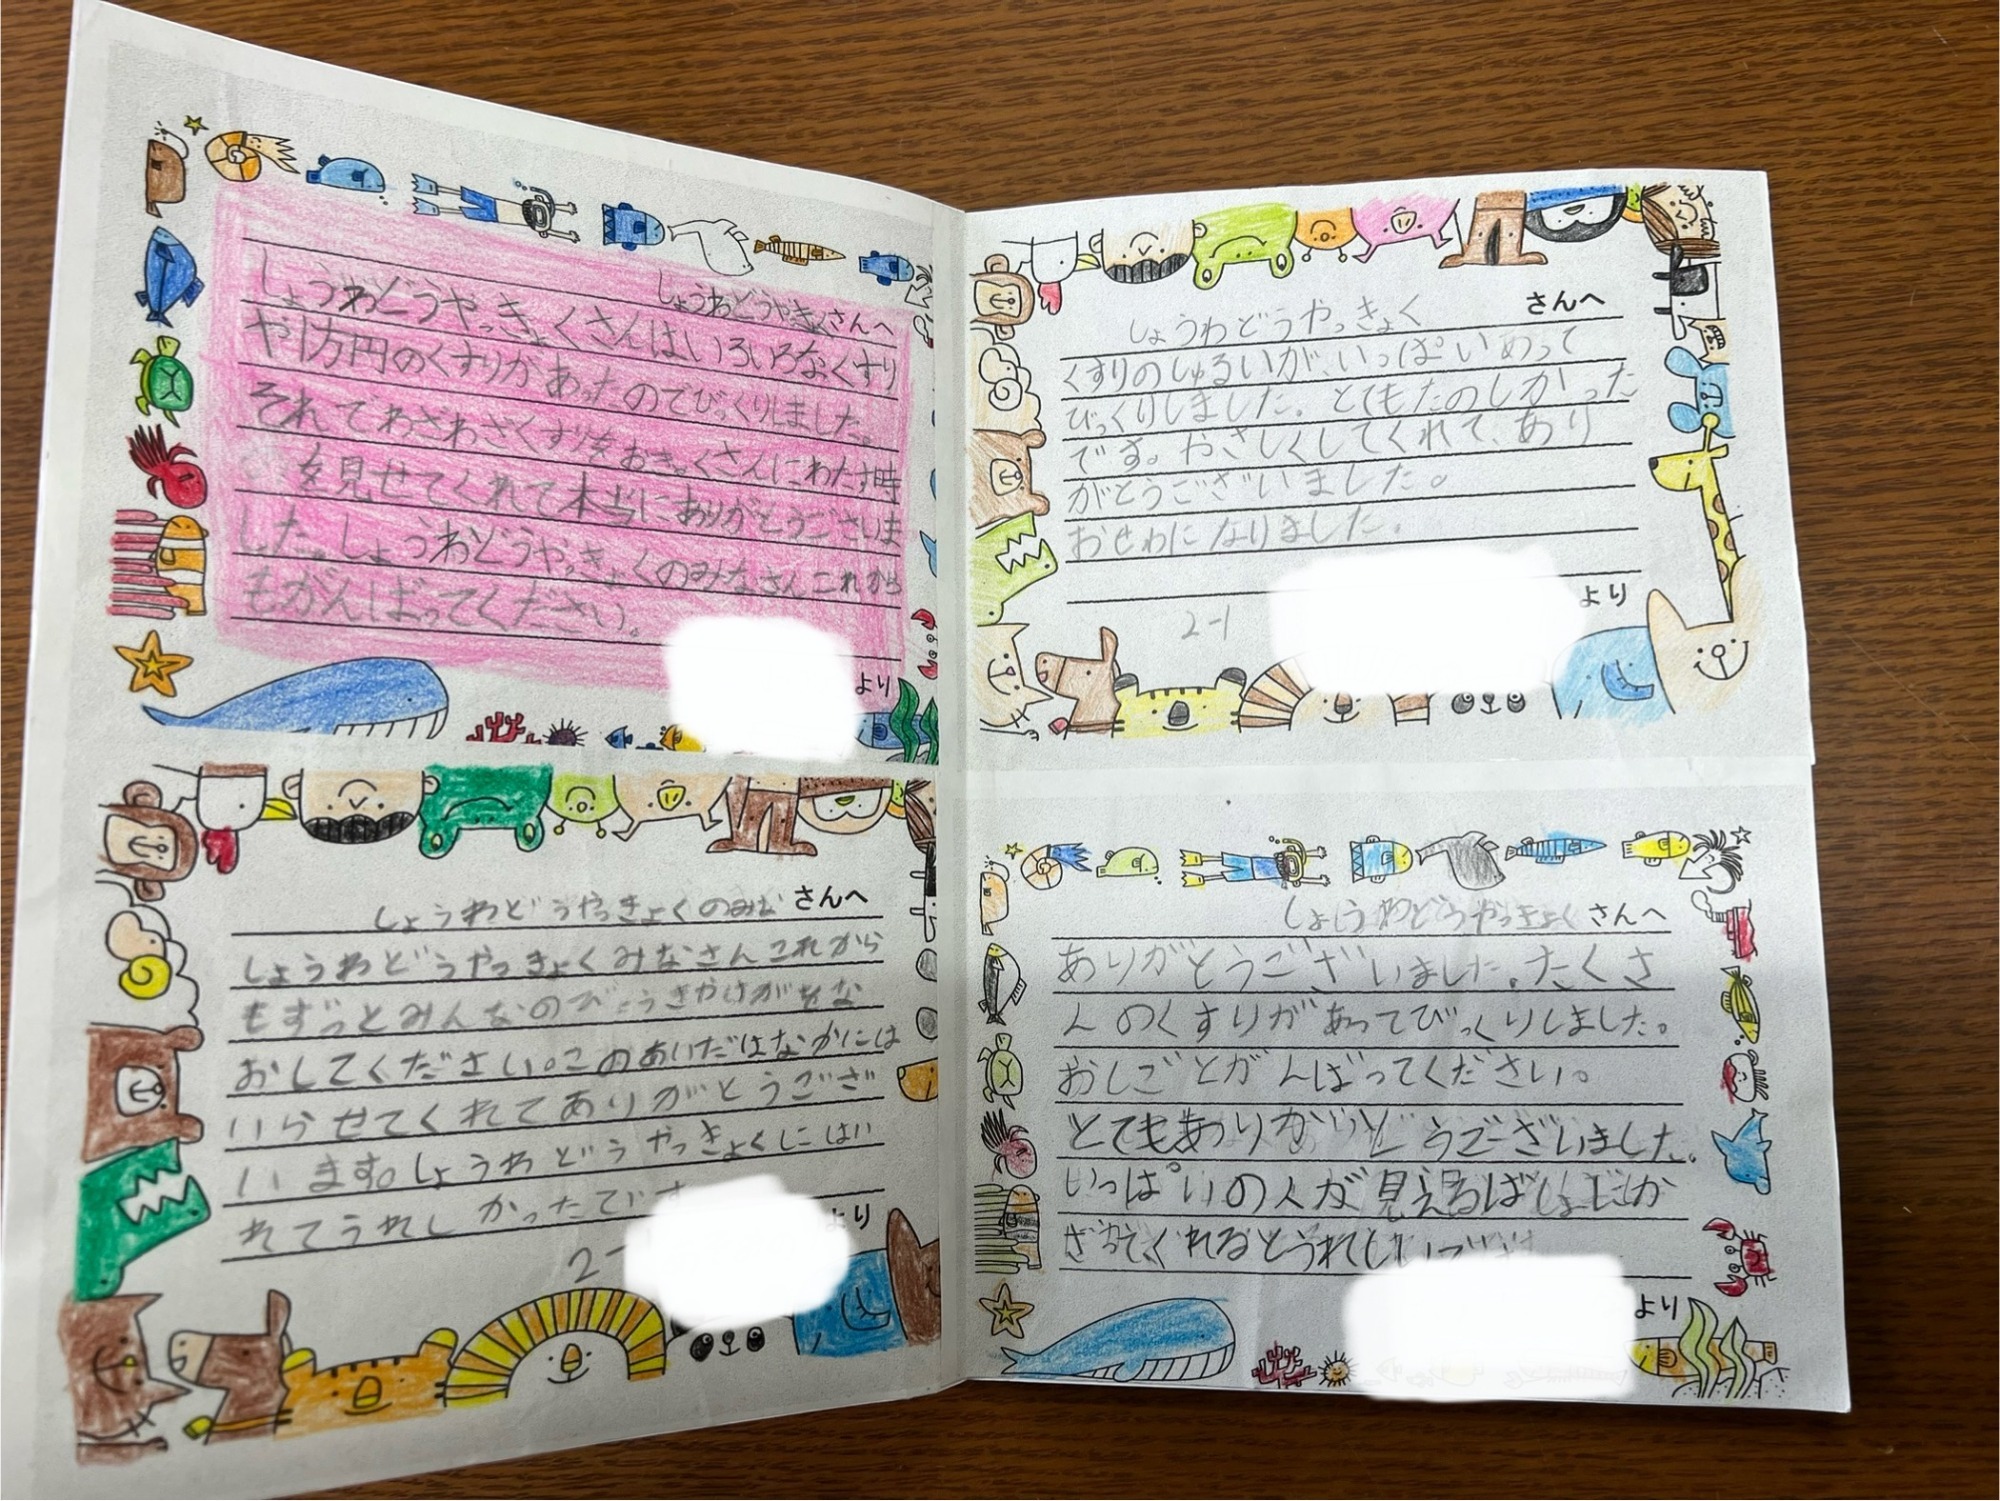 しょうわどうやっきょくさんへ
しょうわどうやっきょくさんはいろいろなくすり
や1万円のくすりがあったのでびっくりしました。
それでわざわざくすりをおきゃくさんにわたす時
を見せてくれて本当にありがとうございま
した。しょうわどうやっきょくのみなさんこれから
もがんばってください。
より
しょうわどうやっきょく さんへ
くすりのしゅるいが、いっぱいあって
びっくりしました。とてもたのしかった
です。やさしくしてくれて、あり
がとうございました。
おせわになりました。
より
2-1
しょうわどうやっきょくのみな さんへ
しょうわどうやっきょくみなさんこれから
もずっとみんなのびょうきやけがをな
おしてください。このあいだはなかには
いらせてくれてありがとうござ
います。しょうわどうやっきょくにはい
れてうれしかったです
より
2-
しょうわどうやっきょく さんへ
ありがとうございました。たくさ
んのくすりがあってびっくりしました。
おしごとがんばってください。
とてもありがとうございました。
いっぱいの人が見えるばしょにか
ざってくれるとうれしいです
より